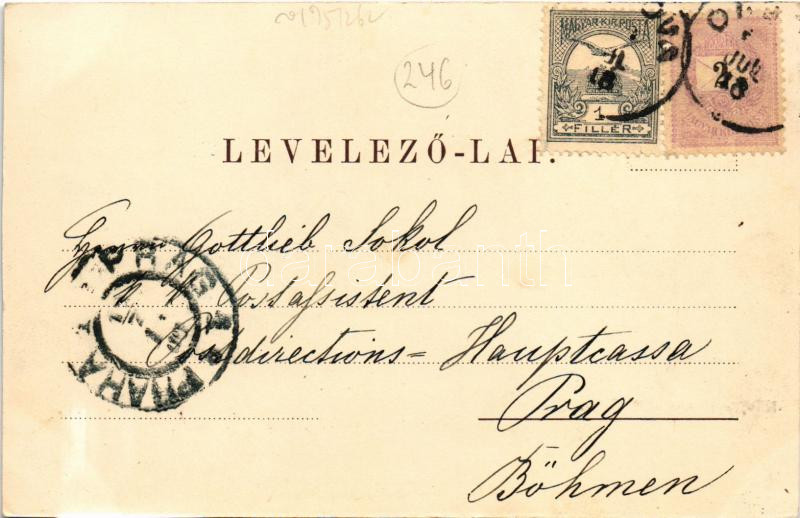 246
MAGYAR·KIR·POSTA
1
FILLÉR
JUL
18
LEVELEZŐ-LAP.
Herrn Gottlieb Sokol
k. k. Postassistent
Postdirections=Hauptcassa
Prag
Böhmen
PRAHA
darabanth